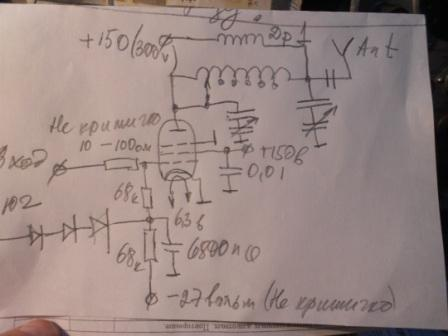 +150/300v
Др 1
Ant
Не критично
10 - 100ом
вход
+150в
0,01
68к
6,3в
68к
6800пф
-27вольт (Не критично)